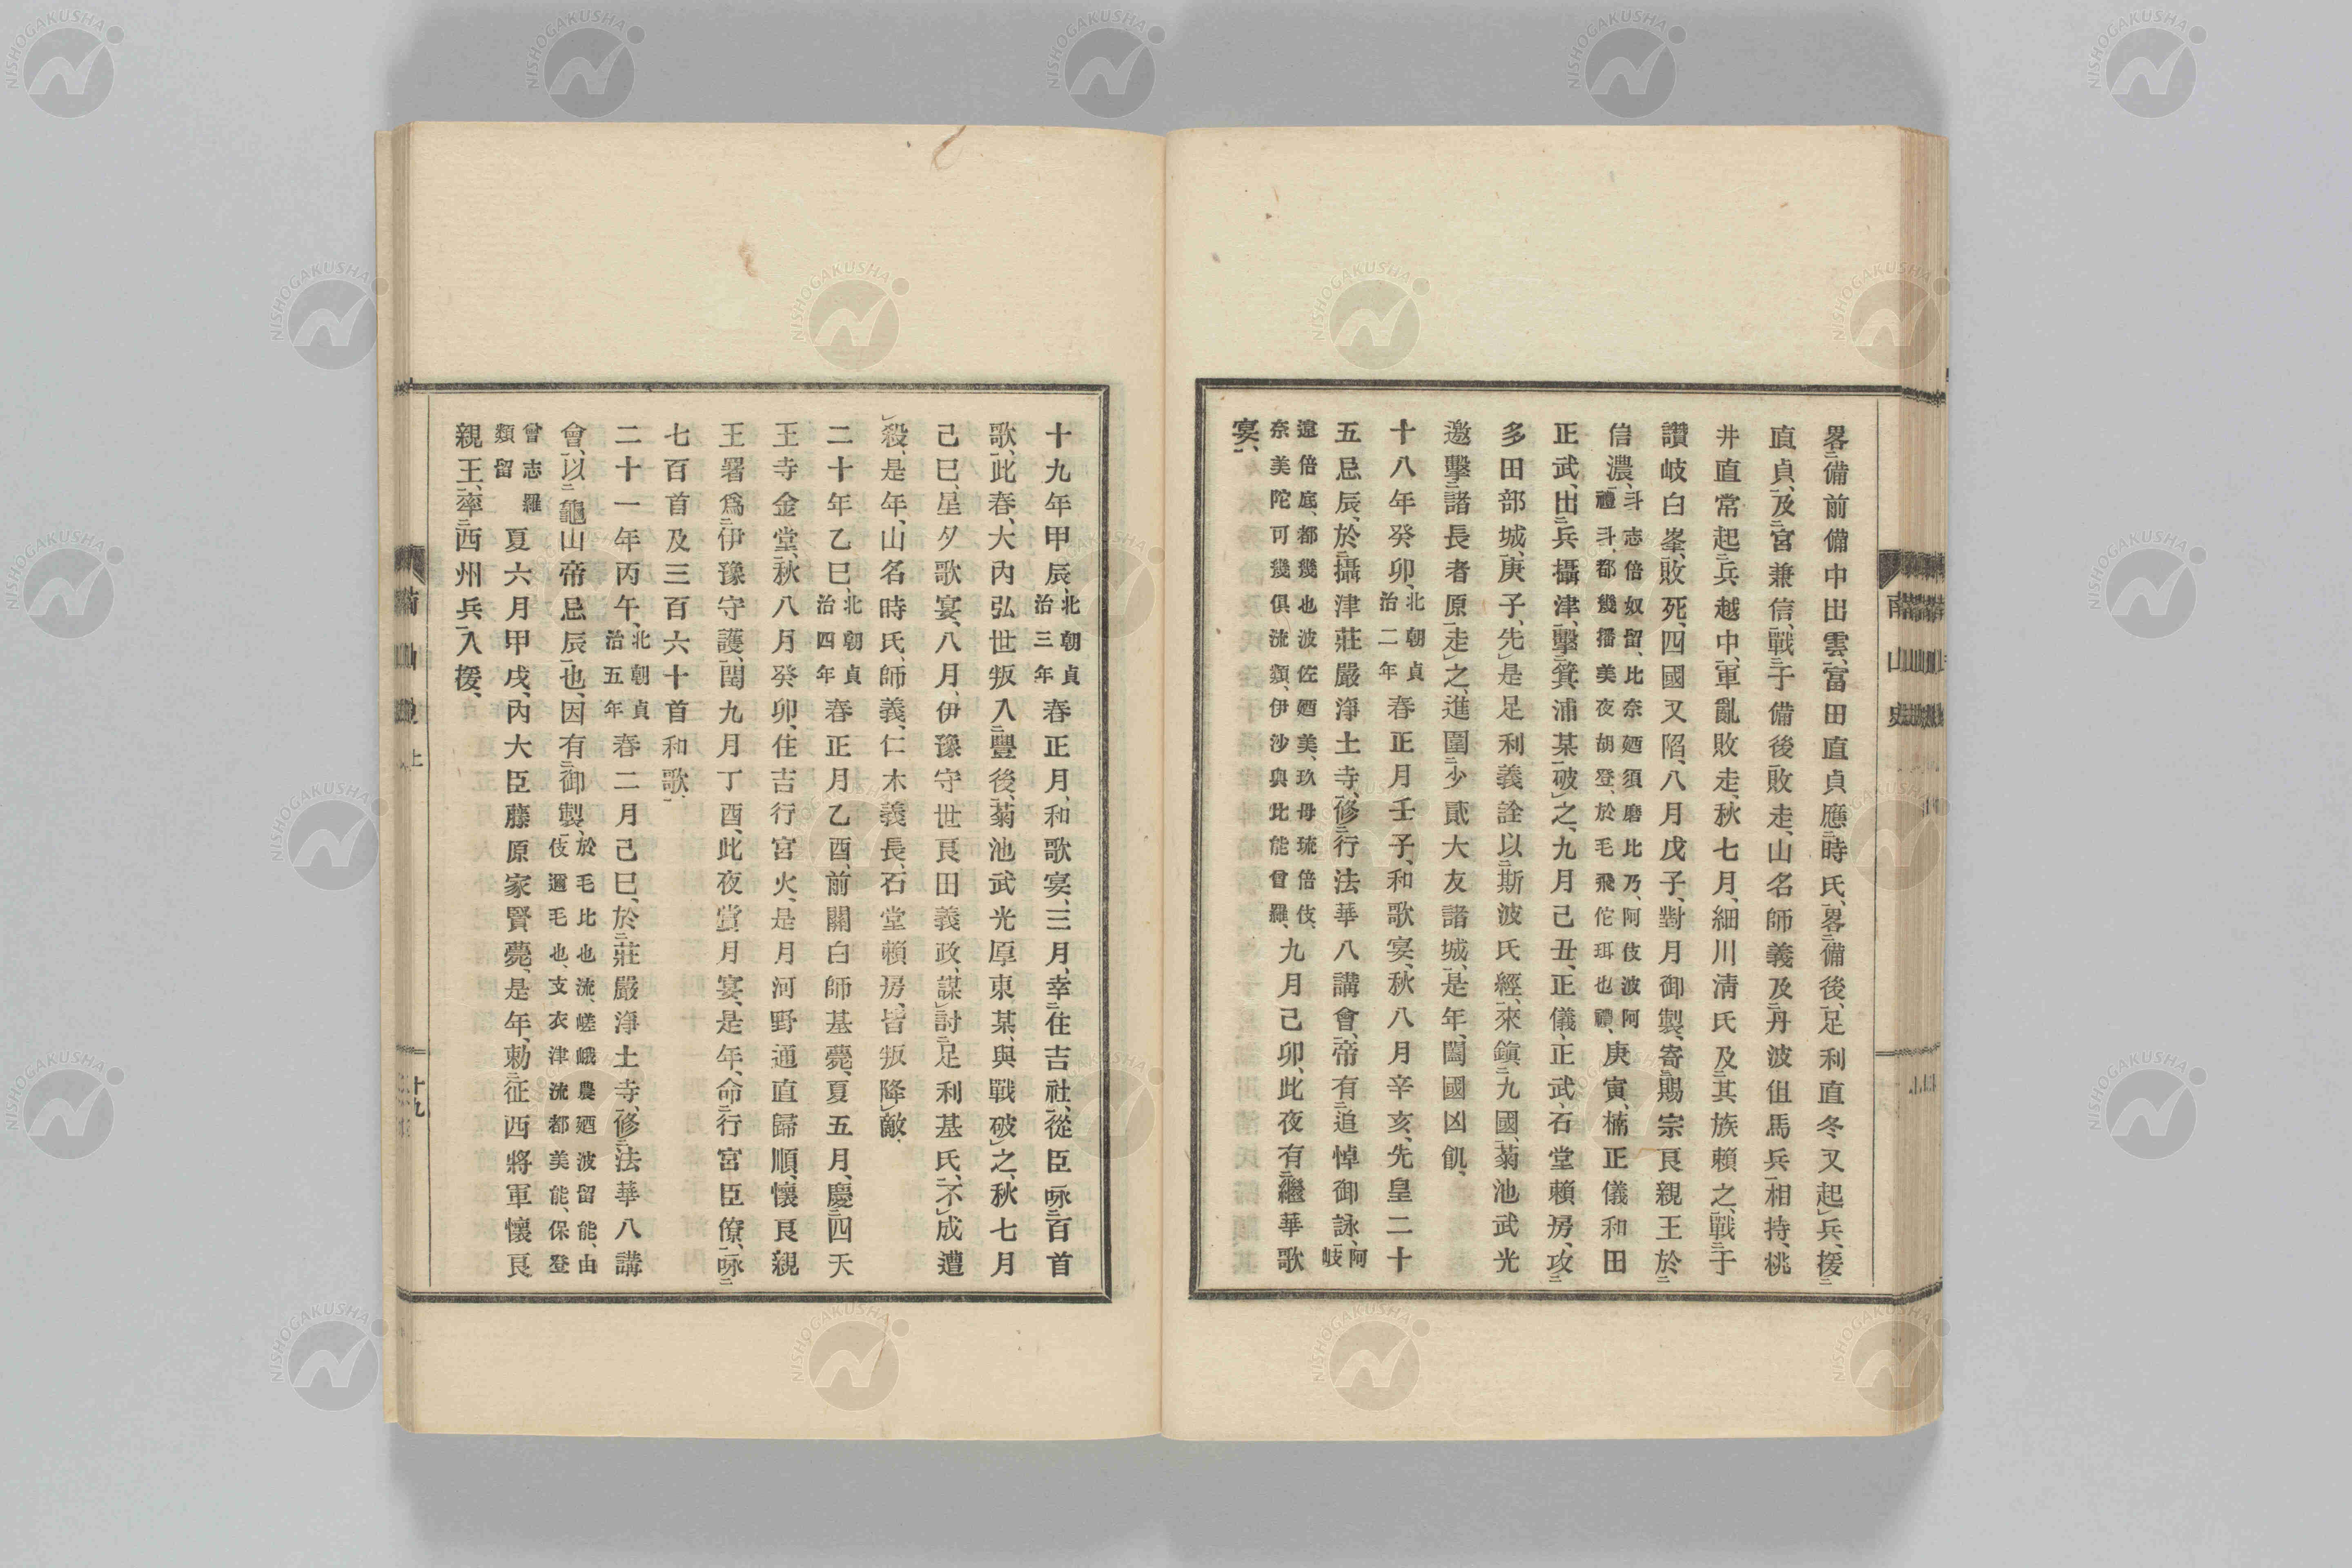 畧備前備中出雲、富田直貞應時氏、畧備後、足利直冬又起兵、援
直貞、及宮兼信、戰于備後、敗走、山名師義及丹波但馬兵、相持、桃
井直常起兵越中、軍亂敗走、秋七月、細川淸氏及其族賴之、戰于
讚岐白峯、敗死、四國又陷、八月戊子、對月御製、寄賜宗良親王於
信濃、斗志倍奴留、比奈廼須磨比乃、阿伎波阿
禮斗、都幾播美夜胡登、於毛飛佗珥也禮、庚寅、楠正儀和田
正武、出兵攝津、擊箕浦某、破之、九月己丑、正儀、正武、石堂賴房、攻
多田部城、庚子、先是足利義詮以斯波氏經、來鎭九國、菊池武光
邀擊諸長者原、走之、進圍少貳大友諸城、是年、闔國凶飢、
十八年癸卯、北朝貞
治二年春正月壬子、和歌宴、秋八月辛亥、先皇二十
五忌辰、於攝津莊嚴淨土寺、修行法華八講會、帝有追悼御詠、阿
岐
遠倍底、都幾也波佐廼美、玖毋琉倍伎、
奈美陀可幾俱流類、伊沙與比能曾羅、九月己卯、此夜有繼華歌
宴、
十九年甲辰、北朝貞
治三年春正月、和歌宴、三月、幸住吉社、從臣詠百首
歌、此春、大內弘世叛入豐後、菊池武光厚東某、與戰破之、秋七月
己巳、星夕歌宴、八月、伊豫守世良田義政、謀討足利基氏、不成遭
殺、是年、山名時氏、師義、仁木義長、石堂賴房、皆叛降敵、
二十年乙巳、北朝貞
治四年春正月乙酉、前關白師基薨、夏五月、慶四天
王寺金堂、秋八月癸卯、住吉行宮火、是月河野通直歸順、懷良親
王署爲伊豫守護、閏九月丁酉、此夜賞月宴、是年、命行宮臣僚、詠
七百首及三百六十首和歌、
二十一年丙午、北朝貞
治五年春二月己巳、於莊嚴淨土寺、修法華八講
會、以龜山帝忌辰也、因有御製、於毛比也流、嵯峨農廼波留能、由
伎邇毛也、支衣津流都美能、保登
曾志羅
類留夏六月甲戌、內大臣藤原家賢薨、是年、勅征西將軍懷良
親王、率西州兵入援、
南山史
上
十九
NISHOGAKUSHA